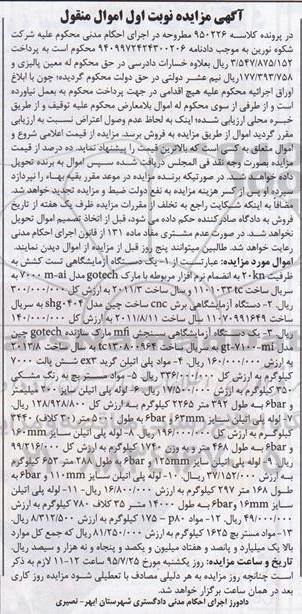 آگهی مزایده نوبت اول اموال منقول
در پرونده کلاسه ۹۵۰۲۲۶ مطروحه در اجرای احکام مدنی محکوم علیه شرکت
شکوه نورین به موجب دادنامه ۹۴۰۹۹۷۲۴۲۴۳۰۰۲۰۶ محکوم است به پرداخت
۳/۵۴۷/۸۷۵/۱۵۲ ریال بعلاوه خسارات دادرسی در حق محکوم له معین پالیزی و
۱۷۷/۳۹۳/۷۵۸ ریال نیم عشر دولتی در حق دولت محکوم گردیده؛ چون با ابلاغ
اوراق اجرائیه محکوم علیه هیچ اقدامی در جهت پرداخت محکوم به بعمل نیاورده
است و از طرفی از سوی محکوم له اموال بلامعارض محکوم علیه توقیف و از طریق
خبره محلی ارزیابی شده؛ اینک به لحاظ عدم وصول اعتراض نسبت به ارزیابی
مقرر گردید اموال از طریق مزایده به فروش برسد. مزایده از قیمت اعلامی شروع و
اموال متعلق به کسی است که بالاترین قیمت را پیشنهاد نماید. ده درصد از قیمت
مزایده بصورت وجه نقد فی المجلس دریافت شده سپس اموال به برنده تحویل
داده خواهد شد. در صورتیکه برنده مزایده در موعد مقرر بقیه بهاء را نپردازد
سپرده او بعد از کسر هزینه مزایده به نفع دولت ضبط و مزایده تجدید خواهد شد.
مضافاً به اینکه شکایت راجع به تخلف از مقررات مزایده ظرف یک هفته از تاریخ
فروش به دادگاه صادرکننده حکم داده می شود، قبل از اتخاذ تصمیم اموال تحویل
نخواهد شد. در صورت عدم مشتری مفاد ماده ۱۳۱ از قانون اجرای احکام مدنی
رعایت خواهد شد. طالبین میتوانند پنج روز قبل از مزایده از اموال دیدن نمایند.
اموال مورد مزایده: عبارتست از ۱- یک دستگاه آزمایشگاهی تست کشش به
ظرفیت ۲۰kn به انضمام نرم افزار مربوطه با مارک gotech مدل ۷۰۰۰ m-ai به
سریال ساخت ۱۱۰۱۰۳۳-tc و سال ساخت ۲۰۱۱/۳ به ارزش کل ۳۰۰/۰۰۰/۰۰۰
ریال. ۲- دستگاه آزمایشگاهی برش cnc ساخت چین مدل shg۰۴۰۴ به سریال
ساخت ۷۰۹۹۱۶۴۹-۱۱۰ و سال ساخت ۲۰۱۱/۸/۱۱ به ارزش کل ۱۴۰/۰۰۰/۰۰۰
ریال. ۳- یک دستگاه آزمایشگاهی سنجش mfi مارک سازنده gotech چین
مدل gt-۷۱۰۰-mi سریال ساخت tc۱۳۰۸۰۰۹۶۴ به سال ساخت ۲۰۱۳/۸
به ارزش ۱۶۰/۰۰۰/۰۰۰ ریال. ۴- مواد پلی اتیلن گرید ex۳ شش پالت ۷۰۰۰
کیلوگرم به ارزش کل ۳۳۶/۰۰۰/۰۰۰ ریال. ۵- مواد مستربچ به رنگ مشکی
۳۵۰ کیلوگرم به ارزش ۱۷/۵۰۰/۰۰۰ ریال. ۶- لوله پلی اتیلن سایز ۲۰۰ میلیمتر
و ۶bar به طول ۲۹۲ متر ۲۲۶۵ کیلوگرم به ارزش کل ۱۲۸/۹۲۸/۸۰۰ ریال.
۷- لوله پلی اتیلن سایز ۶۳mm و ۶bar به طول ۵۱۰۰ متر (۳۰ کلاف) ۳۴۴۰
کیلوگرم به ارزش کل ۱۹۶/۰۰۰/۰۰۰ ریال. ۸- لوله پلی اتیلن سایز ۱۶۰mm
و ۶bar به طول ۴۶۸ متر و به وزن ۱۷۴۰ کیلوگرم به ارزش کل ۹۹/۲۱۶/۰۰۰
ریال. ۹- لوله پلی اتیلن سایز ۱۲۵mm و ۶bar به طول ۲۸۸ متر ۶۵۳ کیلوگرم
به ارزش ۳۷/۱۵۲/۰۰۰ ریال. ۱۰- لوله پلی اتیلن سایز ۱۱۰mm و ۶bar به
طول ۱۶۸ متر ۲۹۷ کیلوگرم به ارزش ۱۶/۸۰۰/۰۰۰ ریال. ۱۱- لوله پلی اتیلن
سایز ۱۶mm و ۶bar به طول ۱۴۰۰۰ متر ۳۵ کلاف ۷۸۰ کیلوگرم به ارزش
۴۹/۰۰۰/۰۰۰ ریال. ۱۲- مواد p۸۰ - ۱۷۵ کیلوگرم به ارزش ۸/۳۱۲/۵۰۰ ریال.
۱۳- مواد مستر بچ ۱۶۲۵ کیلوگرم به ارزش ۸۱/۲۵۰/۰۰۰ ریال که جمع کل موارد
بالا یک میلیارد و پانصد و هفتاد میلیون و یکصد و پنجاه و نه هزار و سیصد ریال.
تاریخ و ساعت مزایده: روز یکشنبه مورخ ۹۵/۷/۲۵ ساعت ۱۲-۱۱ لازم به ذکر
است چنانچه روز مزایده به هر دلیلی مصادف با تعطیلی شود مزایده روز کاری
بعد در همان ساعت برگزار خواهد شد.
دادورز اجرای احکام مدنی دادگستری شهرستان ابهر- نصیری